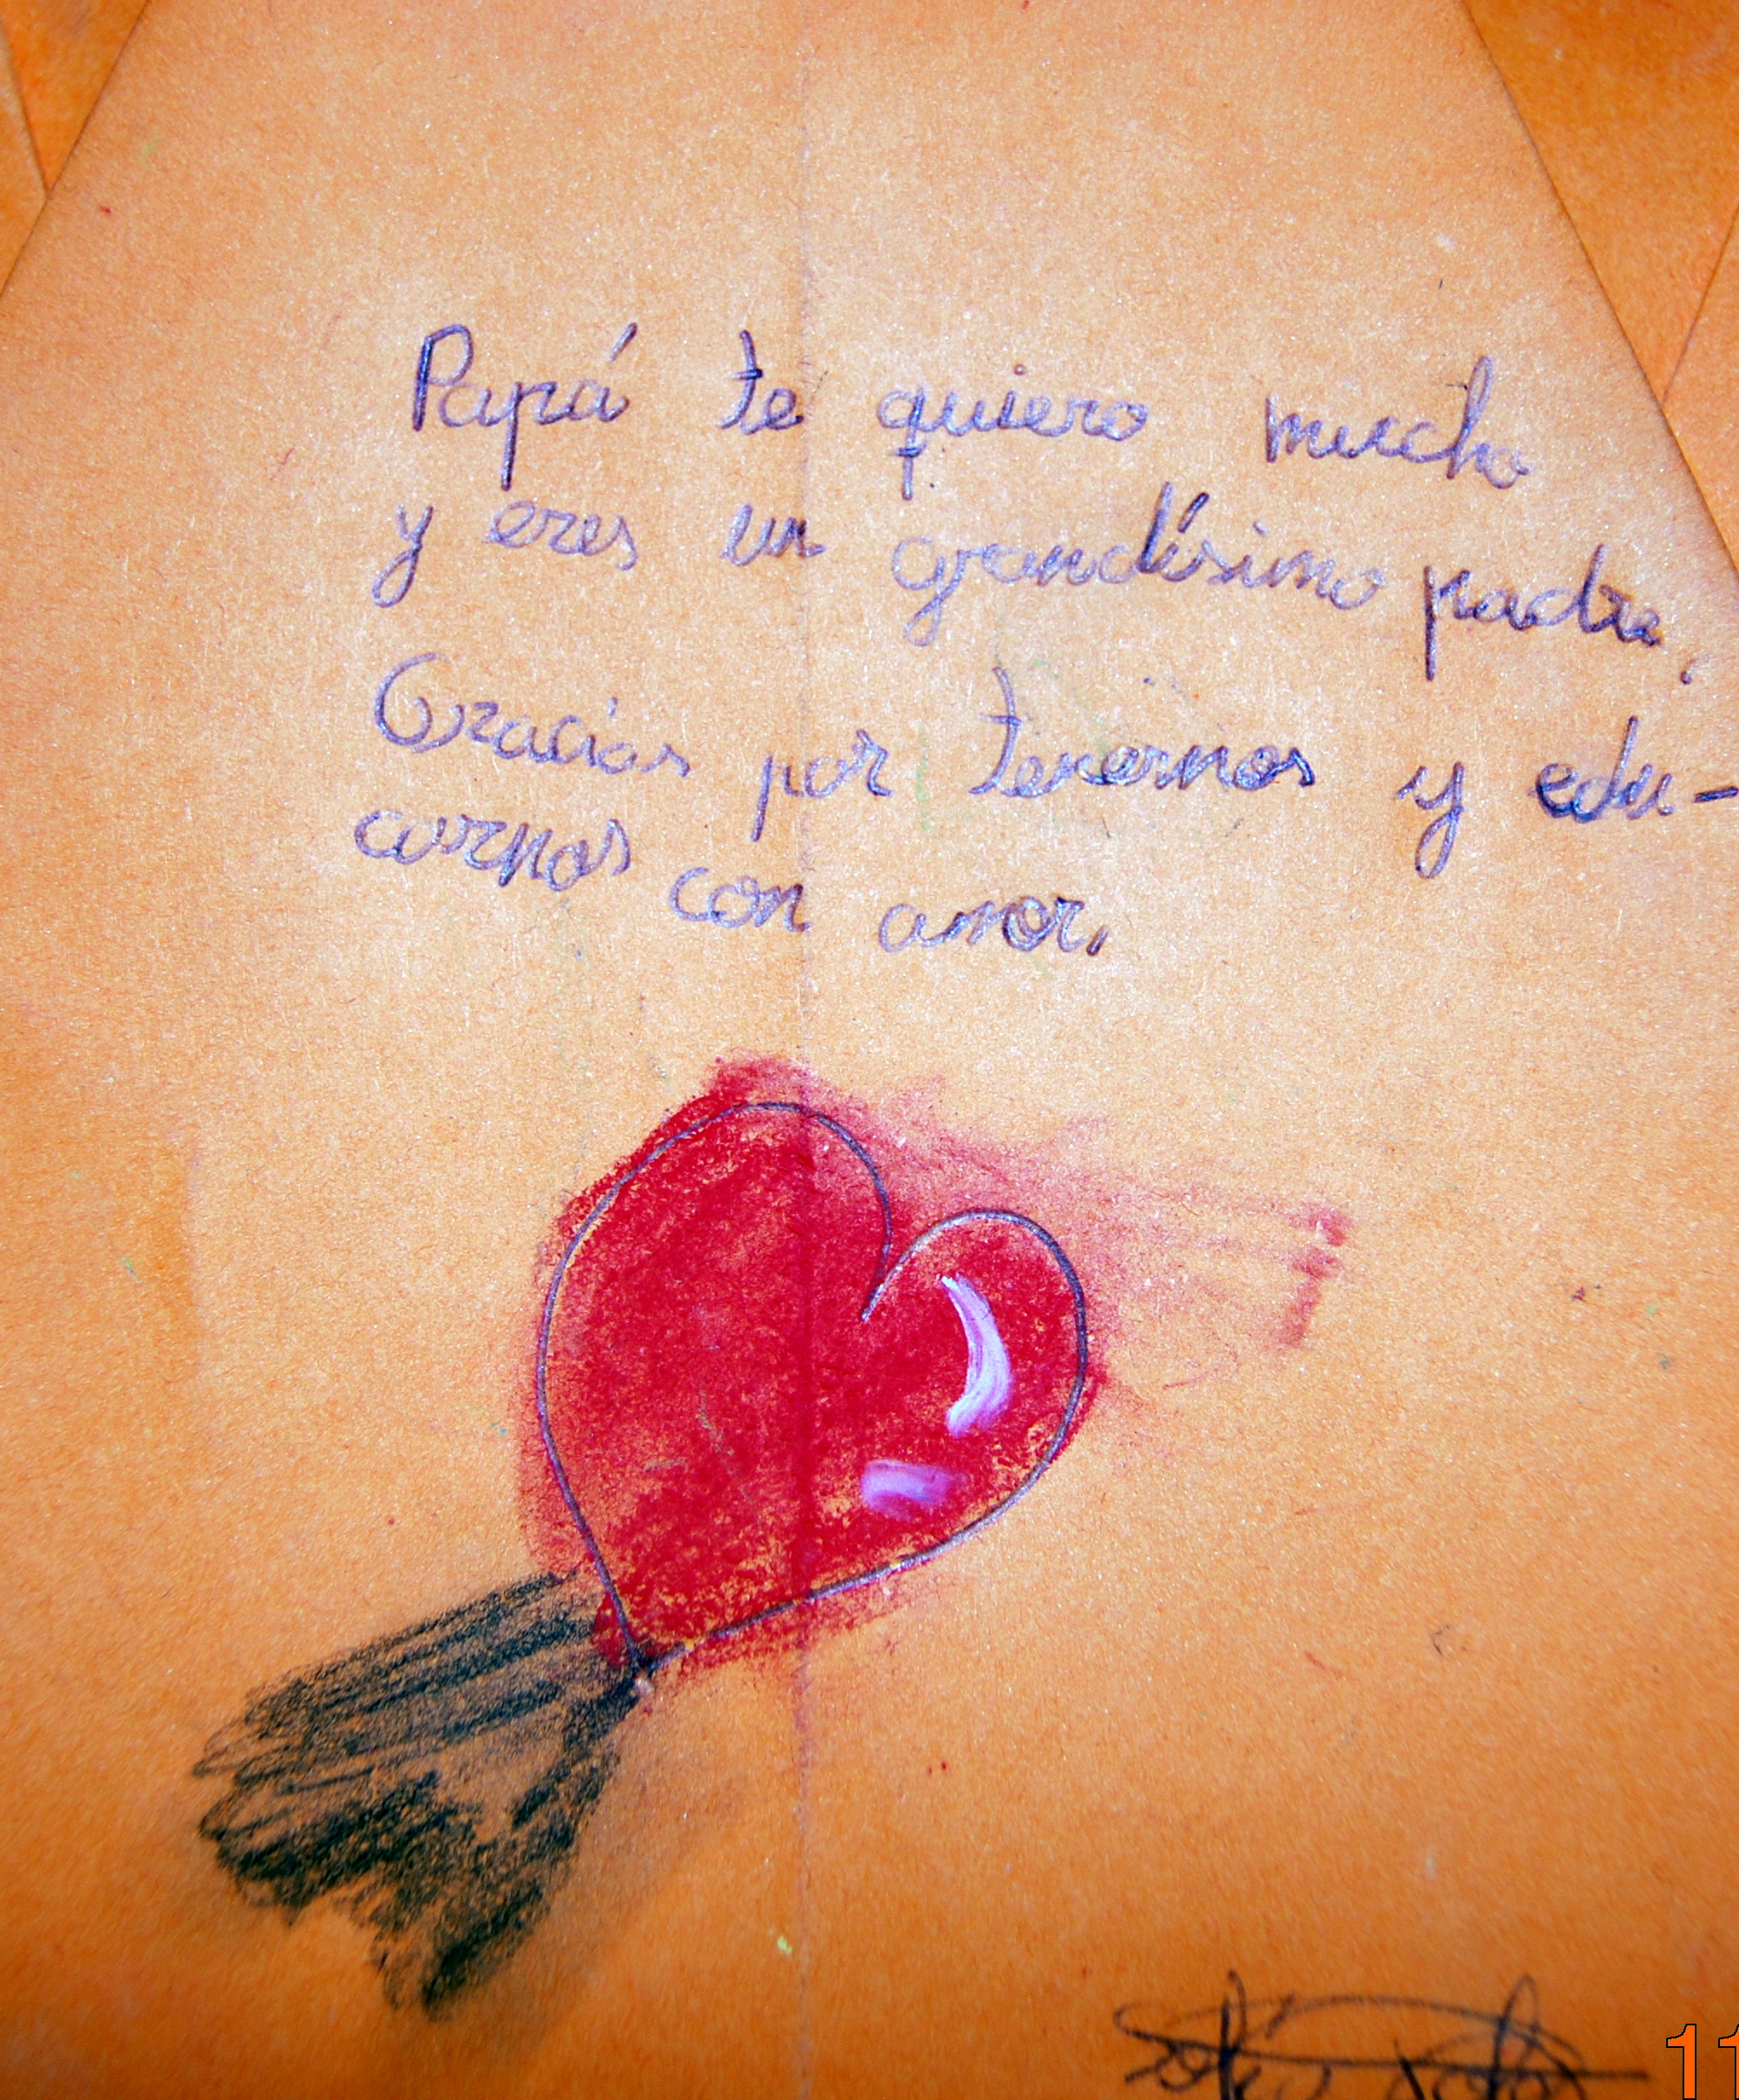 Papá te quiero mucho
y eres un grandísimo padre.
Gracias por tenernos y edu-
carnos con amor.
11